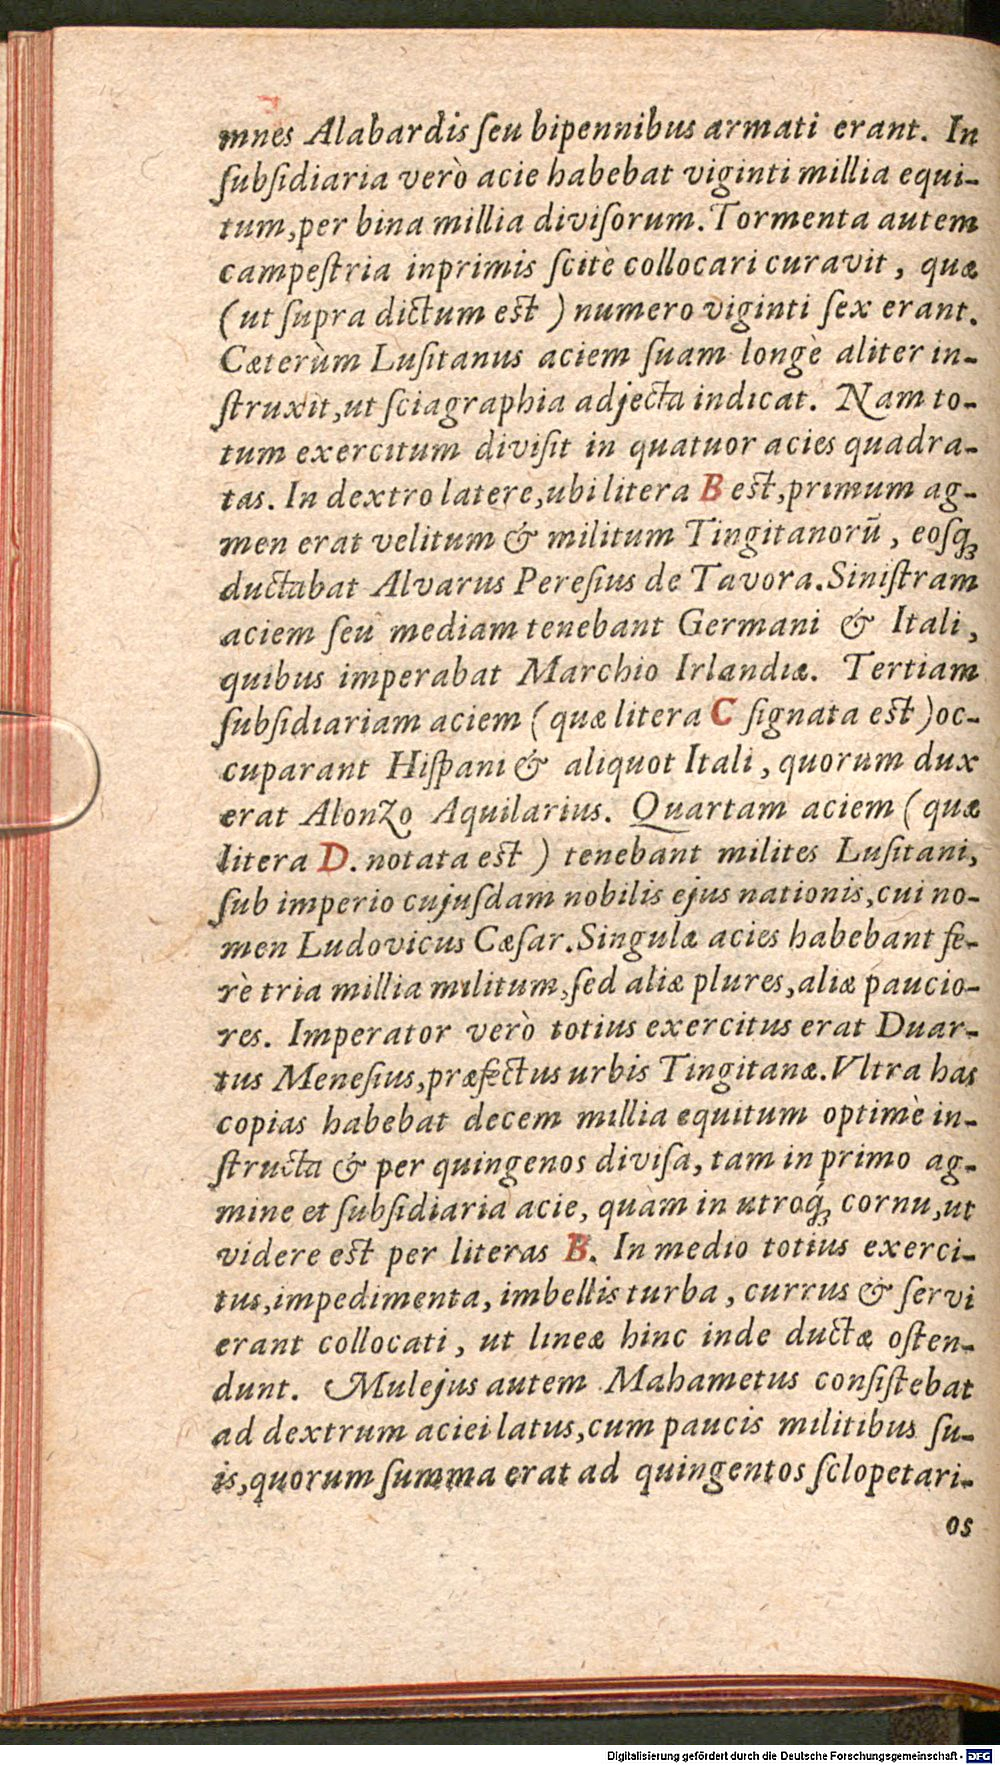 mnes Alabardis ſeu bipennibus armati erant. In
ſubſidiaria verò acie habebat viginti millia equi-
tum, per bina millia diviſorum. Tormenta autem
campeſtria inprimis ſcitè collocari curavit, quæ
(ut ſupra dictum est) numero viginti ſex erant.
Cæterùm Luſitanus aciem ſuam longè aliter in-
ſtruxit, ut ſciagraphia adjecta indicat. Nam to-
tum exercitum diviſit in quatuor acies quadra-
tas. In dextro latere, ubi litera B est, primum ag-
men erat velitum & militum Tingitanorū, eosq́;
ductabat Alvarus Pereſius de Tavora. Siniſtram
aciem ſeu mediam tenebant Germani & Itali,
quibus imperabat Marchio Irlandiæ. Tertiam
ſubſidiariam aciem (quæ litera C ſignata est) oc-
cuparant Hiſpani & aliquot Itali, quorum dux
erat Alonzo Aquilarius. Quartam aciem (quæ
litera D. notata est) tenebant milites Luſitani,
ſub imperio cujuſdam nobilis ejus nationis, cui no-
men Ludovicus Cæſar. Singulæ acies habebant fe-
rè tria millia militum, ſed aliæ plures, aliæ paucio-
res. Imperator verò totius exercitus erat Duar-
tus Meneſius, præfectus urbis Tingitanæ. Vltra has
copias habebat decem millia equitum optimè in-
ſtructa & per quingenos diviſa, tam in primo ag-
mine et ſubſidiaria acie, quàm in utroq́; cornu, ut
videre est per literas B. In medio totius exerci-
tus, impedimenta, imbellis turba, currus & ſervi
erant collocati, ut lineæ hinc inde ductæ oſten-
dunt. Mulejus autem Mahametus conſiſtebat
ad dextrum aciei latus, cum paucis militibus ſu-
is, quorum ſumma erat ad quingentos ſclopetari-
os
Digitalisierung gefördert durch die Deutsche Forschungsgemeinschaft - DFG